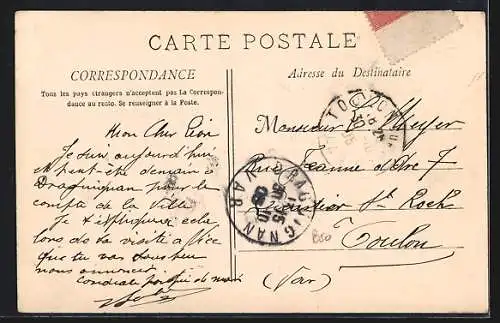 CARTE POSTALE
CORRESPONDANCE
Tous les pays étrangers n'acceptent pas La Correspon-
dance au recto. Se renseigner à la Poste.
Adresse du Destinataire
Mon Cher Léon
Je suis aujourd'hui
et peut-être demain à
Draguignan pour le
compte de la Ville
Je t'expliquerai cela
lors de ta visite à Nice
que tu vas sous peu
nous annoncer.
Cordiale poignée de main
Monsieur L. Meyer
Rue Jeanne d'Arc 7
St Roch
Toulon
(Var)
TOULON
DRAGUIGNAN
VAR
B50